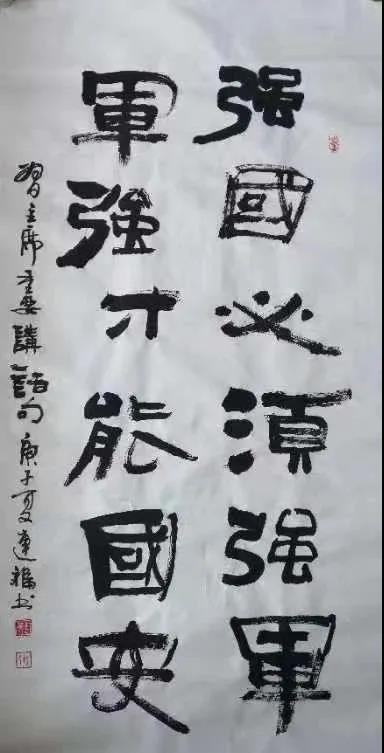 强國必須强軍
軍強才能國安
習主席重要講話句庚子夏連福书